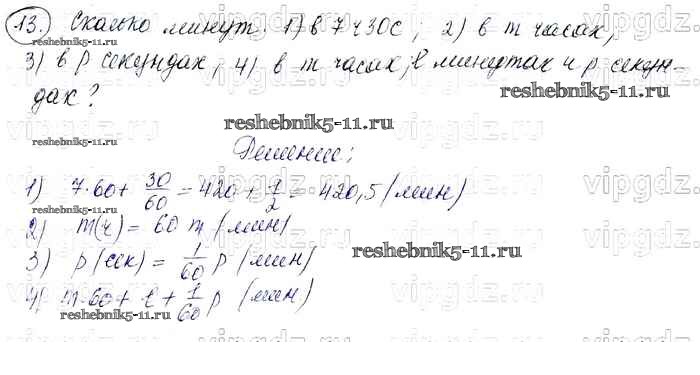 13. Сколько минут: 1) в 7 ч 30 с; 2) в m часах,
3) в p секундах; 4) в m часах, l минутах и p секун-
дах?
Решение:
1) 7·60 + 30/60 = 420 + 1/2 = 420,5 (мин)
2) m(ч) = 60 m (мин)
3) p (сек) = 1/60 p (мин)
4) m·60 + l + 1/60 p (мин)
reshebnik5-11.ru
reshebnik5-11.ru
reshebnik5-11.ru
reshebnik5-11.ru
reshebnik5-11.ru
vipgdz.ru